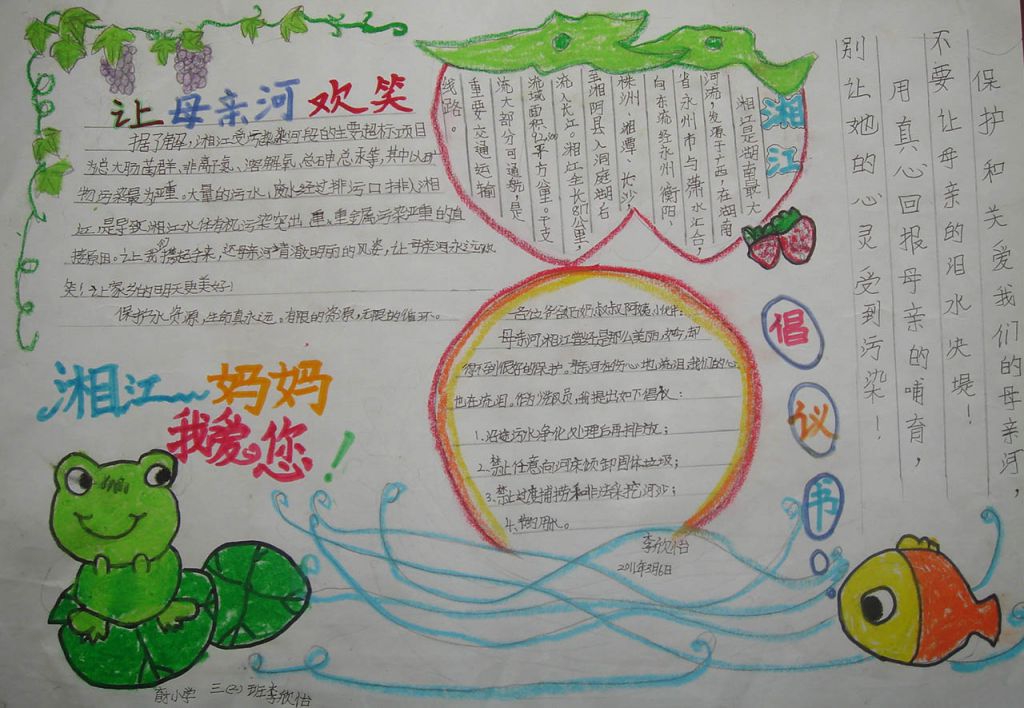 让母亲河欢笑
据了解，湘江受污染河段的主要超标项目
为总大肠菌群、非离子氨、溶解氧、总砷总汞等，其中以
物污染最为严重。大量的污水、废水经过排污口排入湘
江，是导致湘江水体有机污染突出，重金属污染严重的直
接原因。让我们携起手来，还母亲河清澈明丽的风姿，让母亲河永远欢
笑！让家乡的明天更美好！
保护水资源，生命真永远。有限的资源，无限的循环。
湘江
湘江是湖南最大
河流，发源于广西，在湖南
省永州市与潇水汇合，
向东流经永州、衡阳、
株洲、湘潭、长沙，
至湘阴县入洞庭湖后
流入长江。湘江全长817公里，
流域面积92300平方公里。干支
流大部分可通航，是
重要交通运输
线路。
保护和关爱我们的母亲河，
不要让母亲的泪水决堤！
用真心回报母亲的哺育，
别让她的心灵受到污染！
倡议书
各位爷爷奶奶叔叔阿姨小伙伴：
母亲河湘江曾经是那么美丽，如今，却
得不到很好的保护。母亲河在伤心地流泪，我们的心
也在流泪。作为少先队员，我提出如下倡议：
1.沿途污水净化处理后再排放；
2.禁止任意向河床倾卸固体垃圾；
3.禁止过度捕捞和非法采挖河沙；
4.节约用水。
李欣怡
2011年3月6日
湘江～妈妈
我爱您！
小学 三（2）班李欣怡